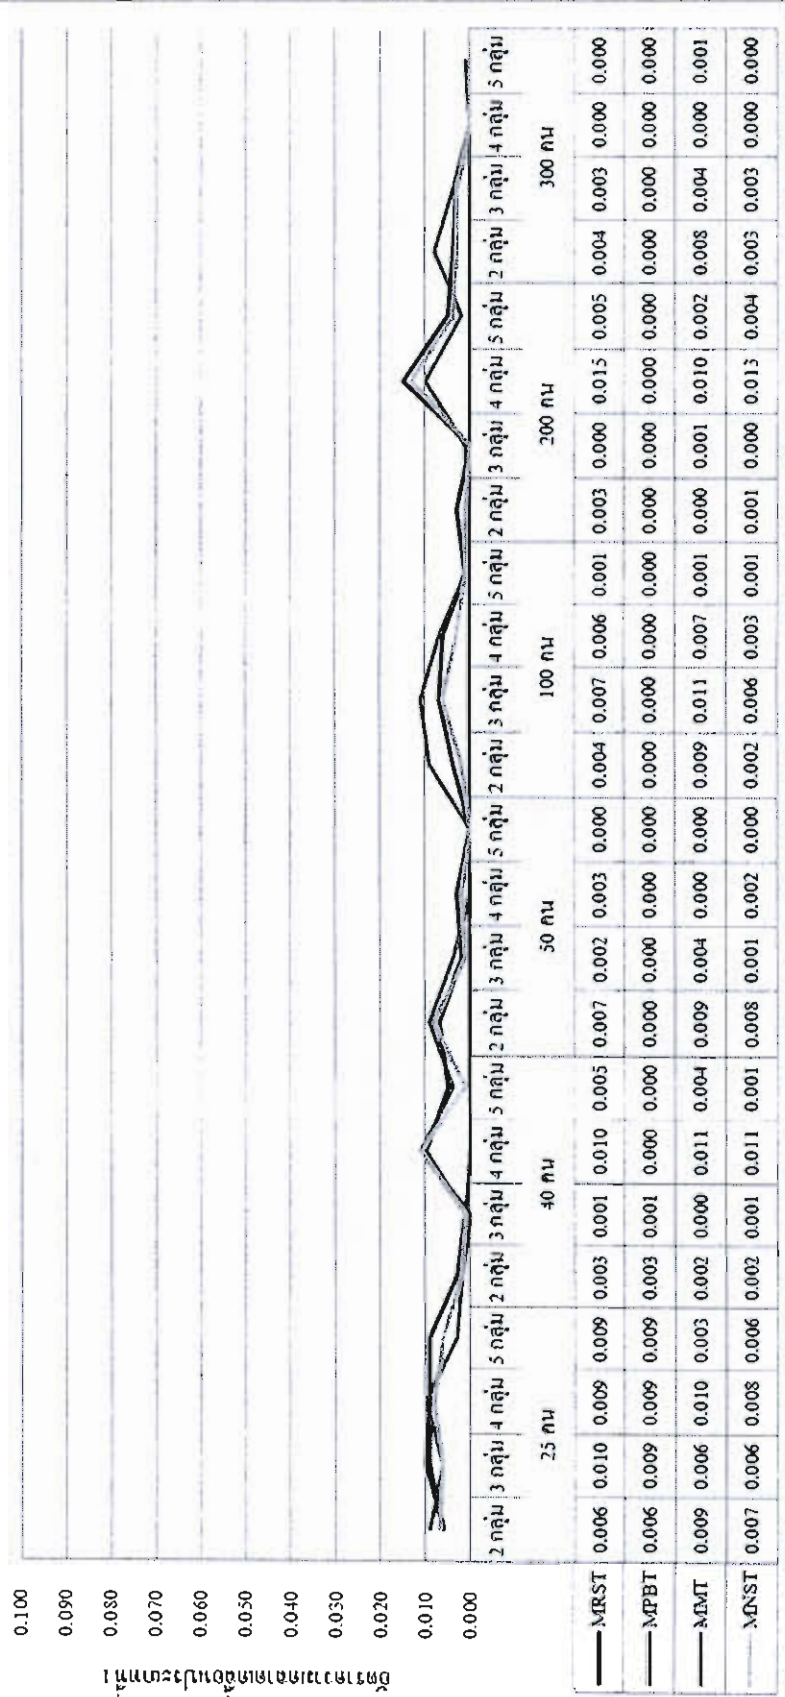 อัตราความคลาดเคลื่อนประเภทที่ 1
0.100
0.090
0.080
0.070
0.060
0.050
0.040
0.030
0.020
0.010
0.000
2 กลุ่ม 3 กลุ่ม 4 กลุ่ม 5 กลุ่ม 2 กลุ่ม 3 กลุ่ม 4 กลุ่ม 5 กลุ่ม 2 กลุ่ม 3 กลุ่ม 4 กลุ่ม 5 กลุ่ม 2 กลุ่ม 3 กลุ่ม 4 กลุ่ม 5 กลุ่ม 2 กลุ่ม 3 กลุ่ม 4 กลุ่ม 5 กลุ่ม 2 กลุ่ม 3 กลุ่ม 4 กลุ่ม 5 กลุ่ม
25 คน 40 คน 50 คน 100 คน 200 คน 300 คน
MRST 0.006 0.010 0.009 0.009 0.003 0.001 0.010 0.005 0.007 0.002 0.003 0.000 0.004 0.007 0.006 0.001 0.003 0.000 0.015 0.005 0.004 0.003 0.000 0.000
MPBT 0.006 0.009 0.009 0.009 0.003 0.001 0.000 0.000 0.000 0.000 0.000 0.000 0.000 0.000 0.000 0.000 0.000 0.000 0.000 0.000 0.000 0.000 0.000 0.000
MMT 0.009 0.006 0.010 0.003 0.002 0.000 0.011 0.004 0.009 0.004 0.000 0.000 0.009 0.011 0.007 0.001 0.000 0.001 0.010 0.002 0.008 0.004 0.000 0.001
MNST 0.007 0.006 0.008 0.006 0.002 0.001 0.011 0.001 0.008 0.001 0.002 0.000 0.002 0.006 0.003 0.001 0.001 0.000 0.013 0.004 0.003 0.003 0.000 0.000